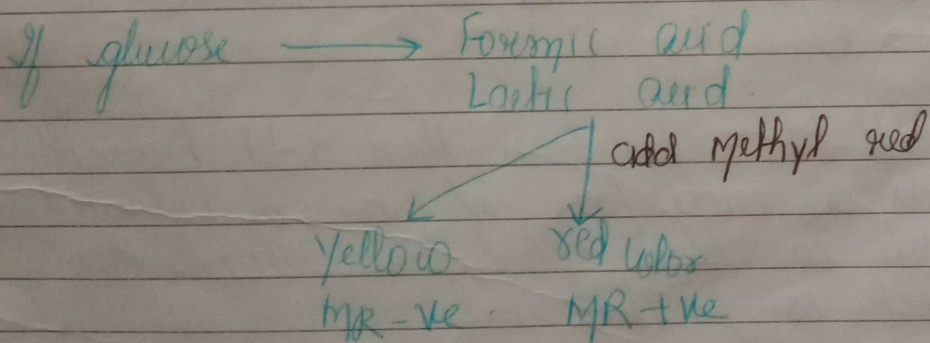 If glucose → Formic acid
Lactic acid.
add Methyl red
Yellow red color
MR -ve. MR +ve